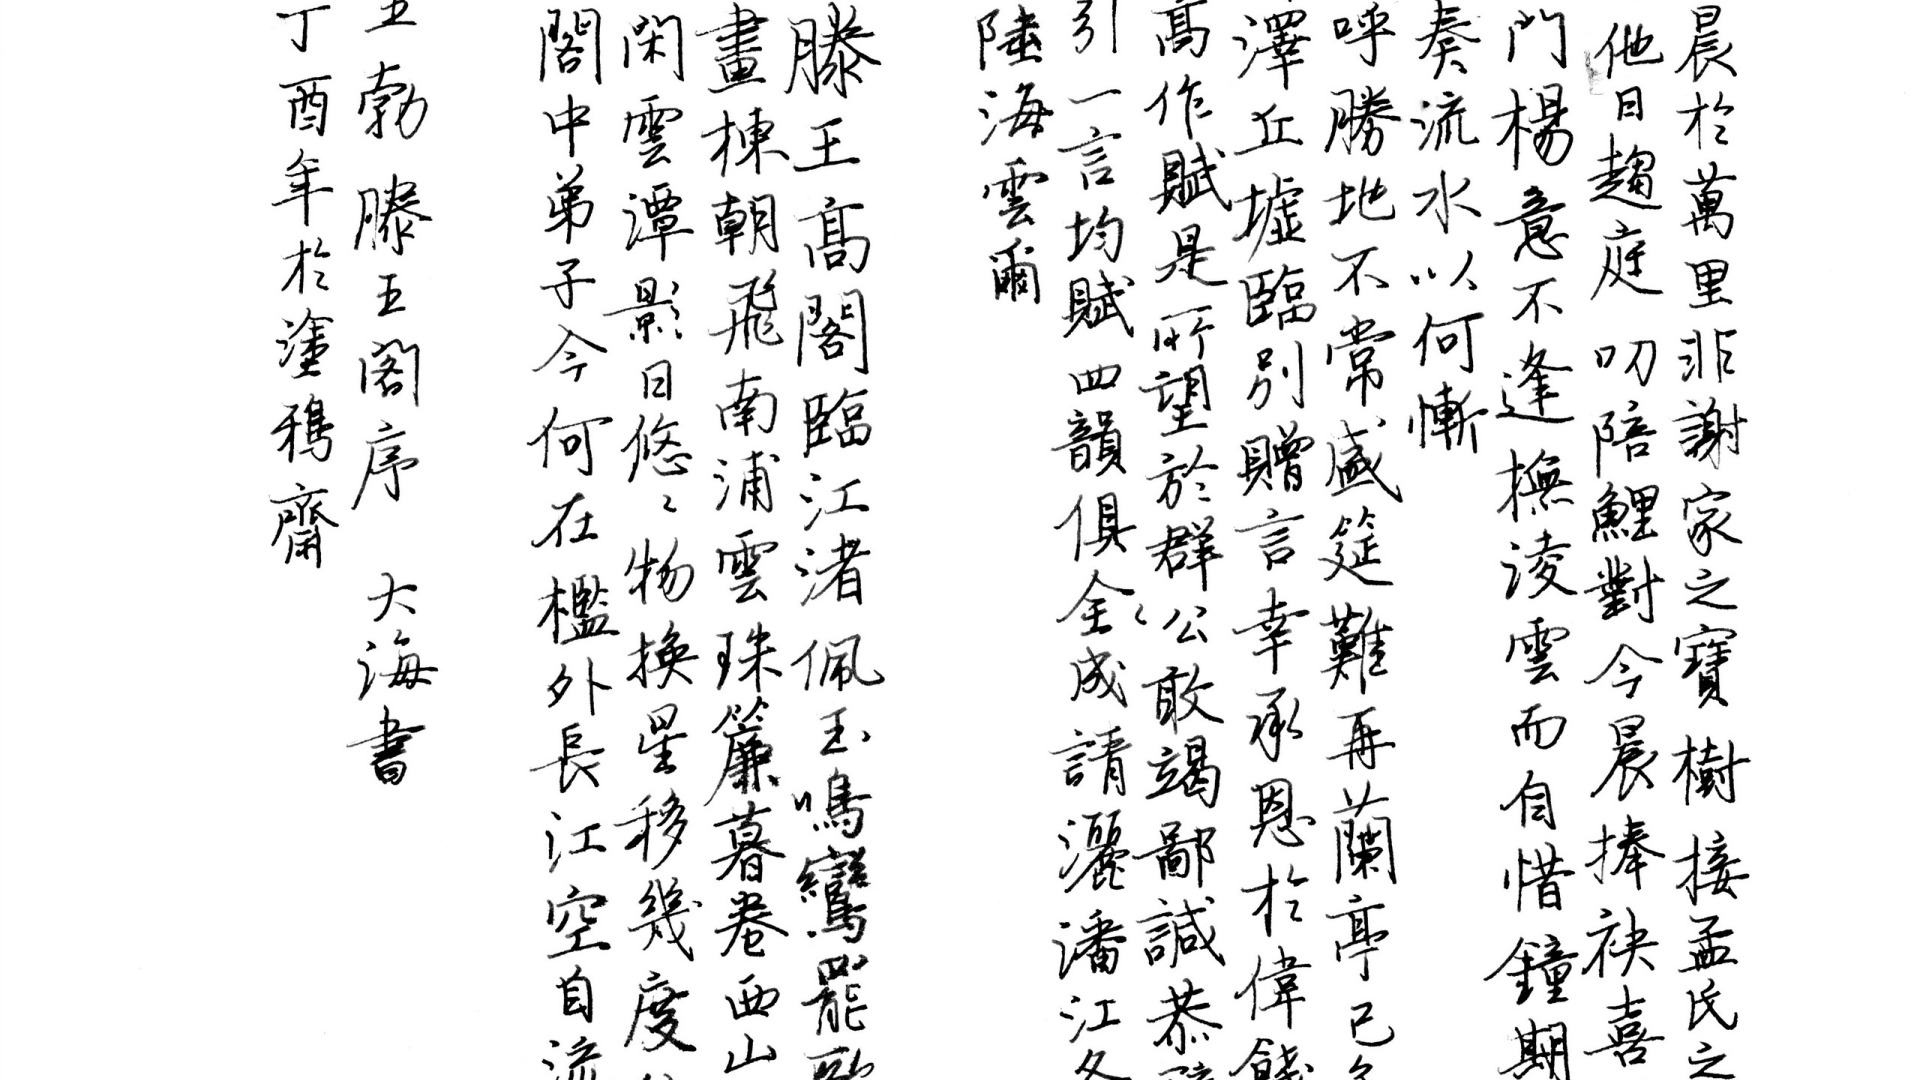 晨於萬里非謝家之寶樹接孟氏之
他日趨庭叨陪鯉對今晨捧袂喜
門楊意不逢撫淩雲而自惜鐘期
奏流水以何慚
呼勝地不常盛筵難再蘭亭已
澤丘墟臨別贈言幸承恩於偉餞
高作賦是所望於群公敢竭鄙誠恭
引一言均賦四韻俱全成請灑潘江
陸海雲爾
滕王高閣臨江渚佩玉鳴鸞罷歌
畫棟朝飛南浦雲珠簾暮卷西山
閑雲潭影日悠〻物換星移幾度
閣中弟子今何在檻外長江空自流
王勃滕王閣序 大海書
丁酉年於塗鴉齋